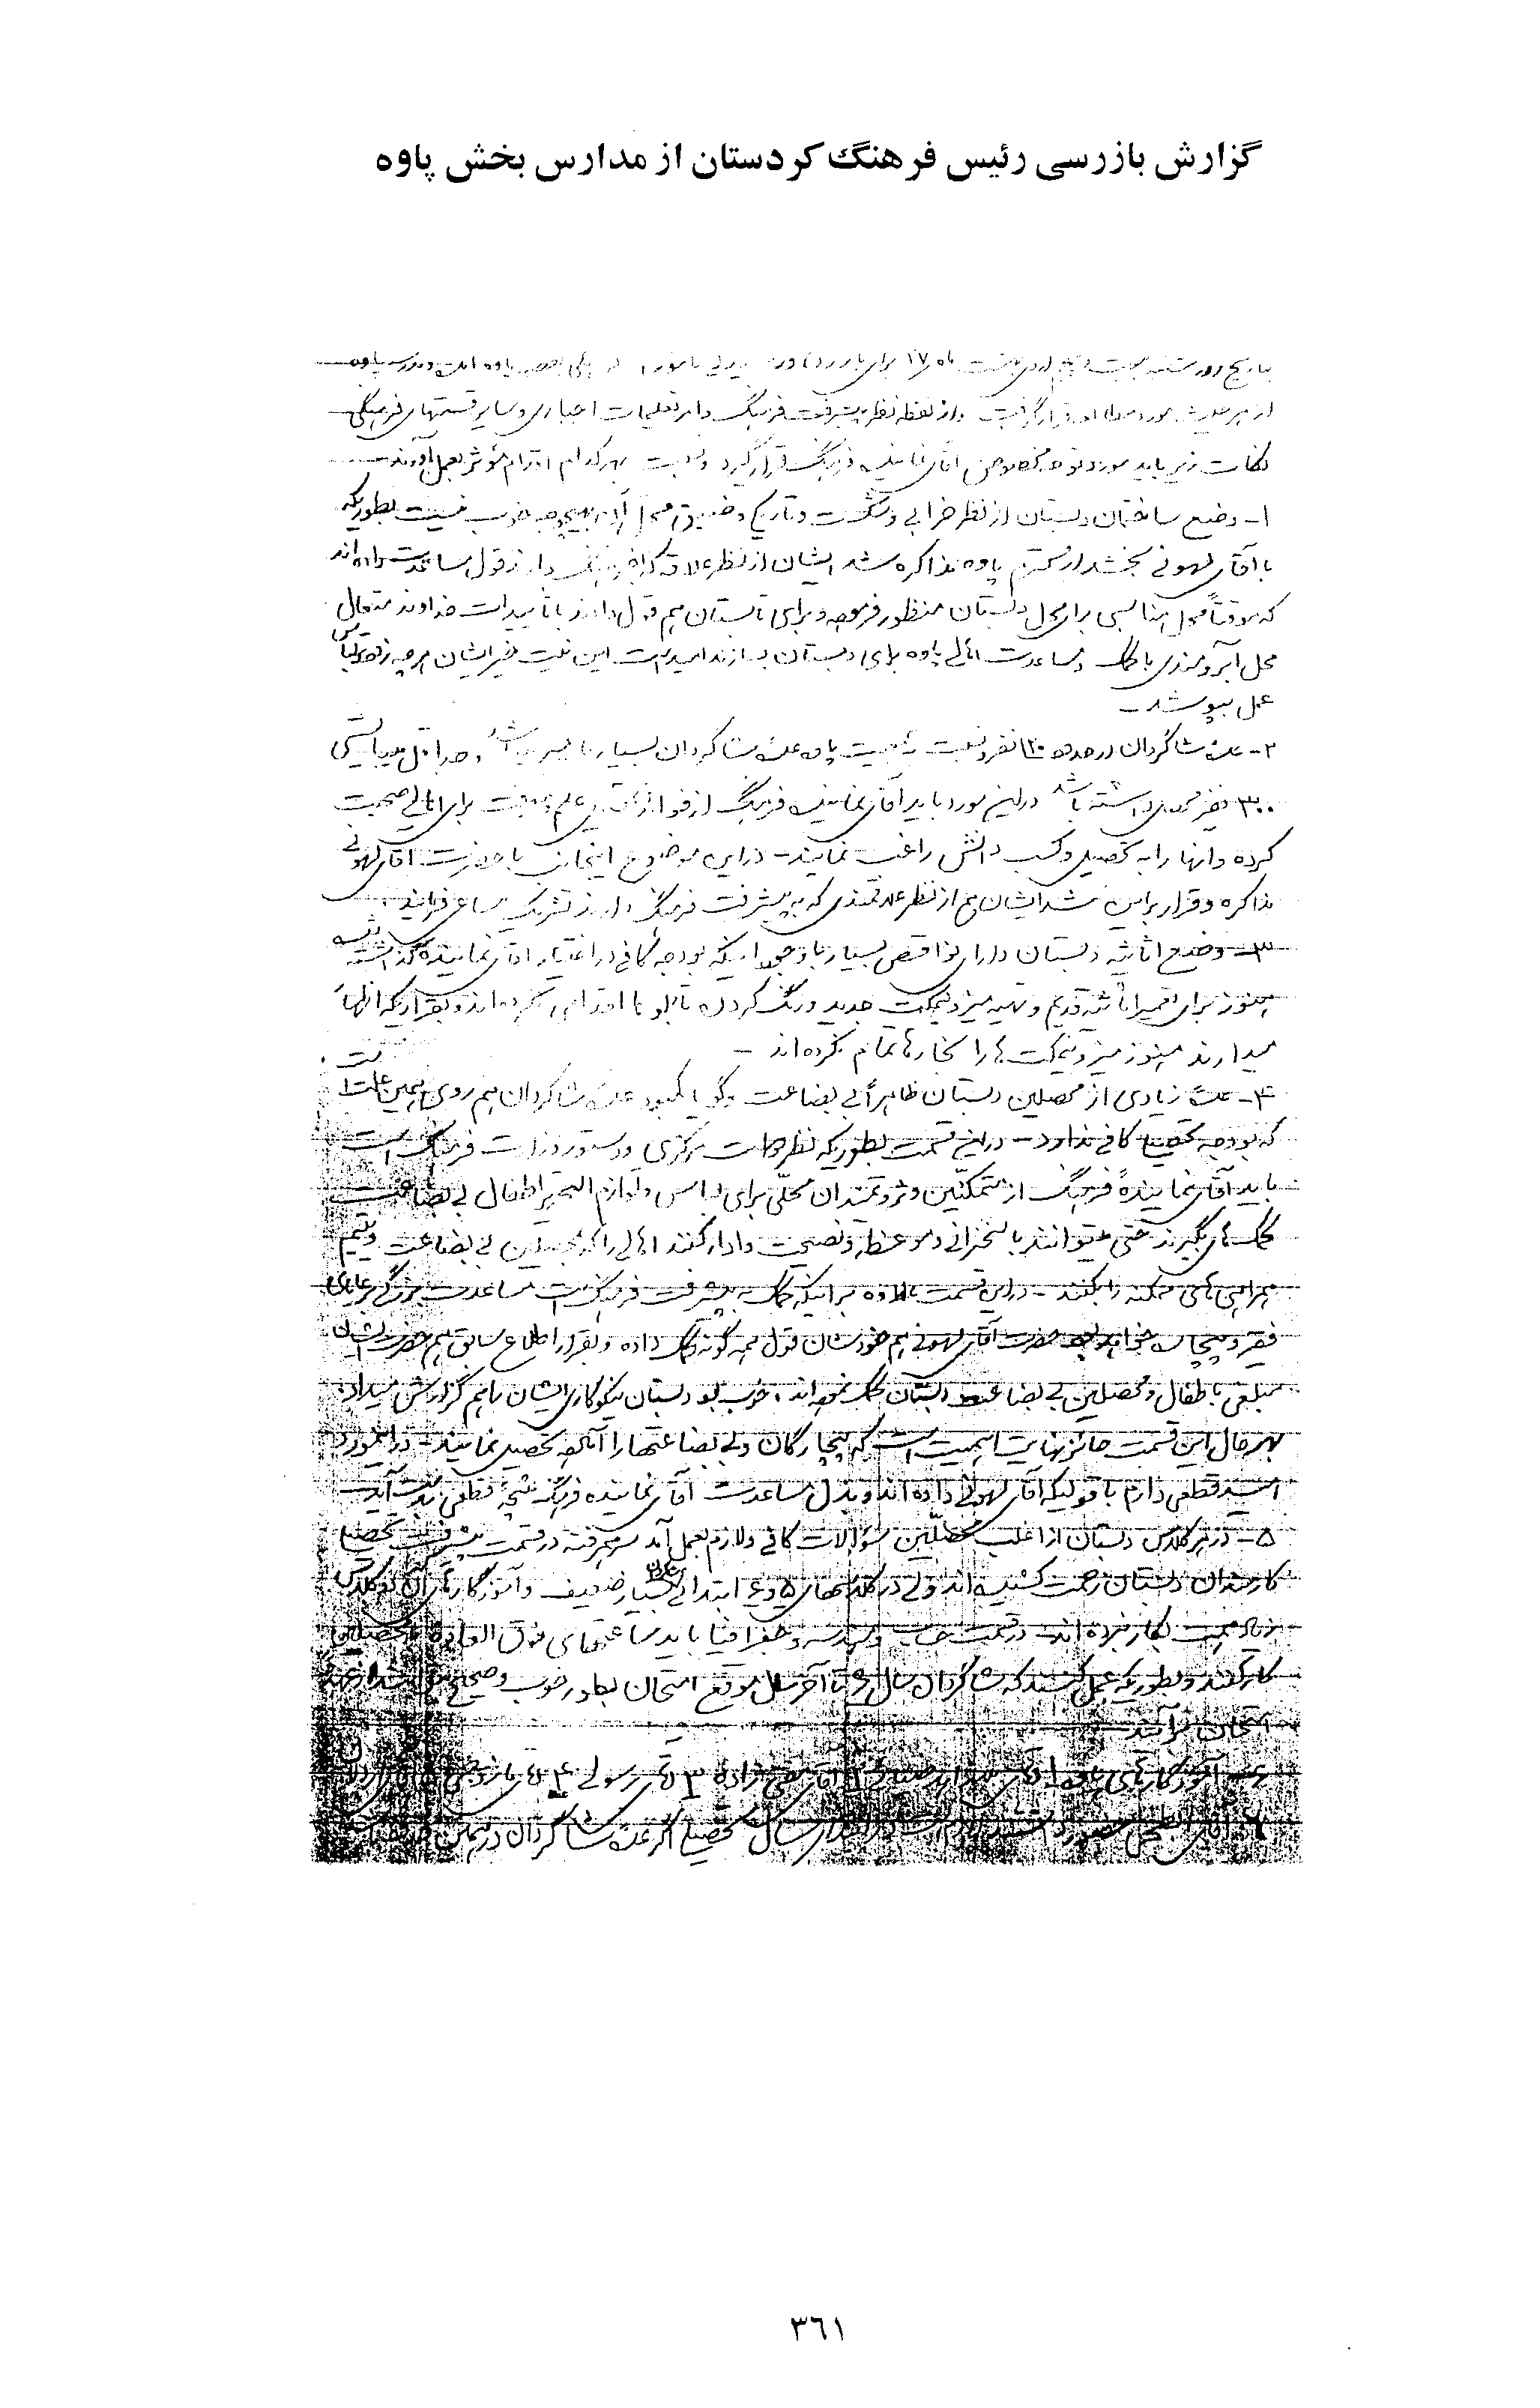 گزارش بازرسی رئیس فرهنگ کردستان از مدارس بخش پاوه
بتاریخ روز سه‌شنبه بیست اردیبهشت ماه ۱۷ برای بازرسی پاوه مدرسه پاوه
از هر حیث مورد مطالعه قرار گرفت و از نقطه نظر پیشرفت فرهنگ و امر تعلیمات اجباری و سایر قسمتهای فرهنگی
نکات زیر باید مورد توجه مخصوص آقای نماینده فرهنگ قرار گیرد و نسبت بهر کدام اقدام مؤثر بعمل آورند
۱- وضع ساختمان دبستان از نظر خرابی و تاریکی و محل آن بهیچوجه خوب نیست بطوریکه
با آقای لهونی بخشدار محترم پاوه مذاکره شد ایشان از نظر علاقه که بفرهنگ دارند قول مساعدت داده‌اند
که موقتاً محل مناسبی برای محل دبستان منظور فرموده و برای تابستان هم قول دادند با تأییدات خداوند متعال
محل آبرومندی با کمک و مساعدت اهالی پاوه برای دبستان بسازند امید است این نیت خیر ایشان هر چه زودتر لباس
عمل بپوشد -
۲- عده شاگردان در حدود ۱۲۰ نفر و نسبت بجمعیت پاوه عده شاگردان بسیار ناچیز میباشد و حداقل میبایستی
۳۰۰ نفر محصل داشته باشد در این مورد باید آقای نماینده فرهنگ از فوائد علم و معرفت برای اهالی صحبت
کرده و آنها را به تحصیل و کسب دانش راغب نمایند - در این موضوع اینجانب با حضرت آقای لهونی
مذاکره و قرار بر این شد ایشان هم از نظر علاقمندی که به پیشرفت فرهنگ دارند تشریک مساعی فرمایند.
۳- وضع اثاثیه دبستان دارای نواقص بسیار با وجود اینکه بودجه کافی در اختیار آقای نماینده گذاشته شده
هنوز برای تعمیر اثاثیه قدیم و تهیه میز و نیمکت جدید و رنگ کردن تابلوها اقدامی نکرده‌اند و بقراریکه اظهار
میدارند هنوز میز و نیمکت‌ها را نجارها تمام نکرده‌اند -
۴- عده زیادی از محصلین دبستان ظاهراً بی بضاعت و گویا کمبود عده شاگردان هم روی همین علت است
که بودجه تحصیل کافی ندارد - در این قسمت بطوریکه نظر مقامات مرکزی و دستور وزارت فرهنگ است
باید آقای نماینده فرهنگ از متمکنین و ثروتمندان محلی برای لباس و لوازم التحریر اطفال بی بضاعت
کمک‌هائی بگیرند حتی میتوانند با سخنرانی و موعظه و نصیحت وادار کنند اهالی را که بمحصلین بی بضاعت و یتیم
همراهی‌های ممکنه را بکنند - در این قسمت علاوه بر اینکه کمک به پیشرفت فرهنگ است مساعدت بزرگی برعایای
فقیر و بیچاره خواهد بود حضرت آقای لهونی هم خودشان قول همه گونه کمک داده و بقرار اطلاع سابق هم حضرت ایشان
مبلغی باطفال و محصلین بی بضاعت دبستان کمک نموده‌اند، خوب بود دبستان نیکوکاری ایشان را هم گزارش میداد.
بهر حال این قسمت حائز نهایت اهمیت است که بیچارگان و بی بضاعتها را آماده تحصیل نمایند - در اینمورد
امید قطعی دارم با قولیکه آقای لهونی داده‌اند و بذل مساعدت آقای نماینده فرهنگ نتیجه قطعی بدست آید
۵- در هر کلاس دبستان از اغلب محصلین سؤالات کافی و لازم بعمل آمد رویهمرفته در قسمت پیشرفت تحصیل
کارمندان دبستان زحمت کشیده‌اند ولی در کلاسهای ۵ و ۶ ابتدائی بسیار ضعیف و آموزگارهای این دو کلاس
زیاد همت بکار نبرده‌اند در قسمت حساب و هندسه و جغرافیا باید ساعتهای فوق العاده با محصلین
کار کنند و بطوریکه عمل کنند که شاگردان سال تا آخر سال موقع امتحان بطور خوب و صحیح از عهده
امتحان برآیند
آموزگارهای پاوه
تحصیلی اگر عده شاگردان در همین
۳٦۱